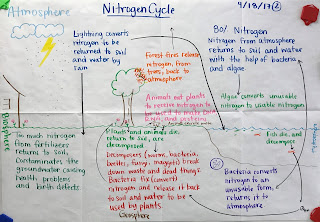 Nitrogen Cycle
Atmosphere
Lightning converts
nitrogen to be
returned to soil
and water by
rain
Forest fires release
nitrogen, from
trees, back to
atmosphere
80% Nitrogen
Nitrogen from atmosphere
returns to soil and water
with the help of bacteria
and algae
Animals eat plants
to receive nitrogen to be
used to make
and protein
Algae converts unusable
nitrogen to usable nitrogen
Biosphere
Too much nitrogen
from fertilizer
returns to soil.
Contaminates the
groundwater causing
health problems
and birth defects
Plants and animals die,
return to soil, are
decomposed
Decomposers (worms, bacteria,
beetles, fungi, maggots) break
down waste and dead things
Bacteria fix (convert)
nitrogen and release it back
to soil and water to be
used by plants
Geosphere
Fish die, and
decompose
Bacteria converts
nitrogen to an
unusable form,
returns it to
atmosphere
Hydrosphere